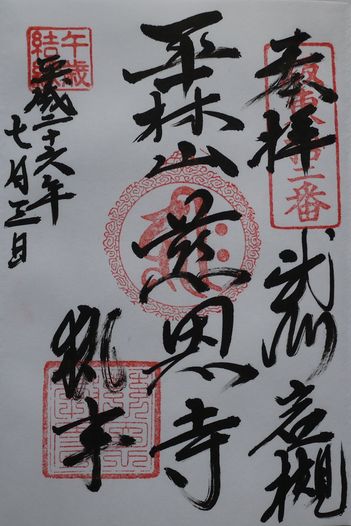 坂東第十二番
奉拝
武州
岩槻
華林山
慈恩寺
執事
午歳
結縁
平成二十六年
七月三日